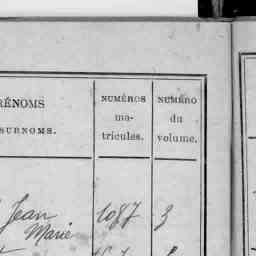 RÉNOMS
SURNOMS.
NUMÉROS
ma-
tricules.
NUMÉRO
du
volume.
Jean 1087 3
Marie